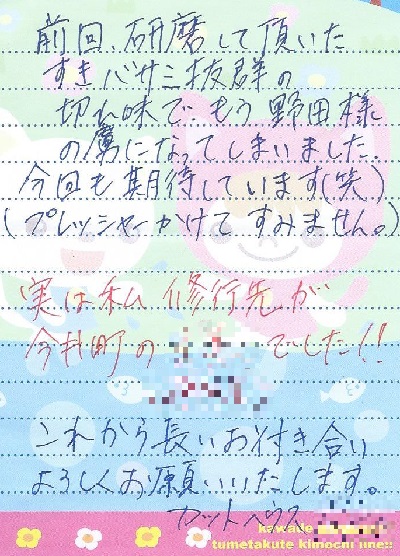 前回、研磨して頂いた
すきバサミ抜群の
切れ味で、もう野田様
の虜になってしまいました。
今回も期待しています(笑)
(プレッシャーかけてすみません。)
実は私 修行先が
今井町の
でした!!
これから長いお付き合い
よろしくお願いいたします。
カットハウス
kawaiie
tumetakute kimochi iine!!